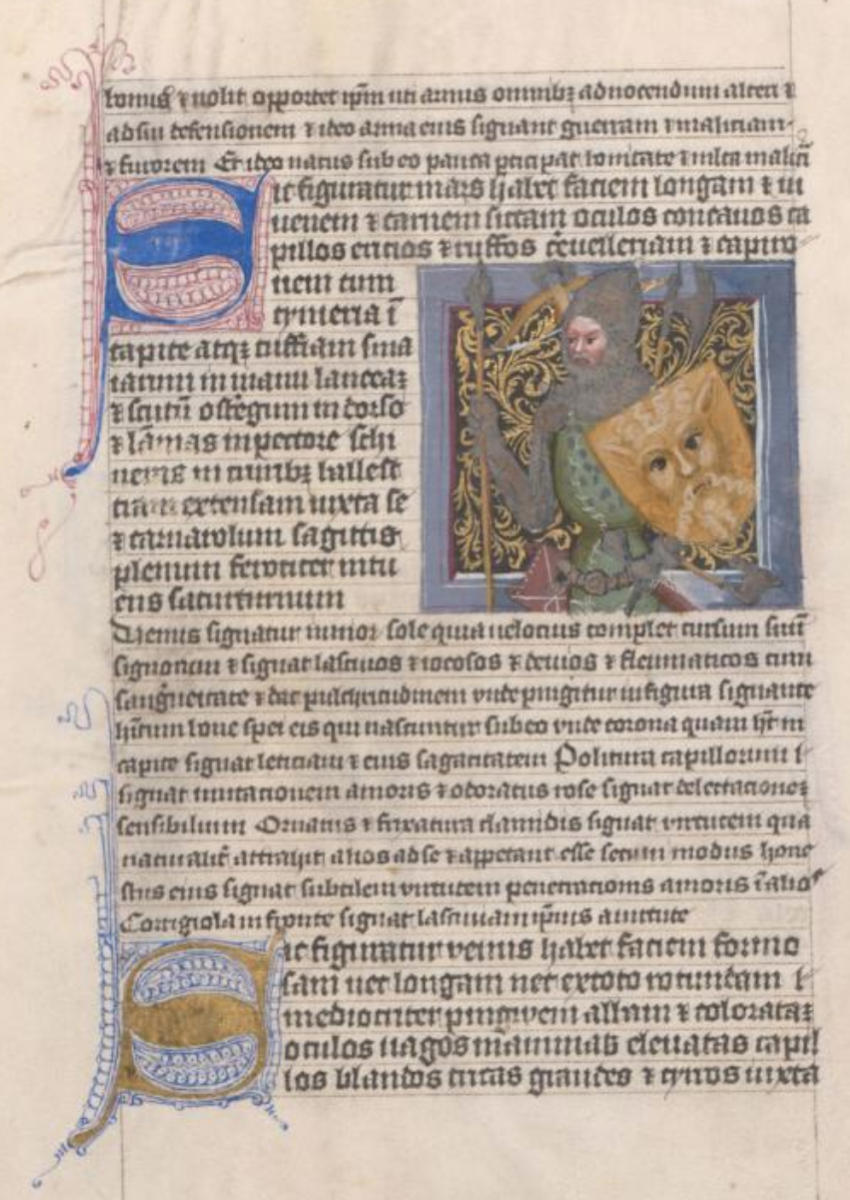 bonus ⁊ uolit opportet ipm uti armis omnibꝫ ad nocendum alteri ⁊
ad sui defensionem ⁊ ideo arma eius signant guerram ⁊ maliciam
⁊ furorem Et ideo natus sub eo pauca pticipat bonitate ⁊ multa malici
Sic figuratur mars habet faciem longam ⁊ iu
uenem ⁊ carnem siccam oculos concauos ca
pillos ericios ⁊ ruffos ceruelleriam ⁊ capiro
nem cum
cymeria ī
capite atqꝫ cuffiam sma
latum in manu lanceaꝫ
⁊ scutū in dorso
⁊ lāmas in pectore
in balles
tram extensam iuxta se
⁊ sagittis
plenum ferociter intu
ens saturturnum
Venus signatur minor sole quia uelocius complet cursum suū
signorum ⁊ signat lasciuos ⁊ iocosos ⁊ ⁊ fleumaticos cum
sanguicitate ⁊ dat pulchritudinem vnde pingitur in figura signante
bone spei eis qui nascuntur sub eo vnde corona quam hꝫ in
capite signat leticiam ⁊ eius sagacitatem Politura capillorum
signat inuitacionem amoris ⁊ odoratus rose signat delectacioneꝫ
sensibilium Ornatus ⁊ clamidis signat virtutem qua
naturalit attrahit alios ad se ⁊ appetant esse secum modus hone
stus eius signat subtilem virtutem penetracionis amoris ī alios
Corrigiola in fronte signat lasciuam
Sic figuratur venus habet faciem formo
sam nec longam nec ex toto rotundam
mediocriter pinguem albam ⁊ colorataꝫ
oculos uagos mammas eleuatas capil
los blandos grandes ⁊ iuxta